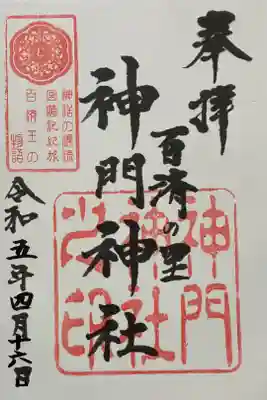 奉拝
百済の里
神門神社
令和五年四月十六日
神門
神社
之印
神話の源流
百済王の
物語